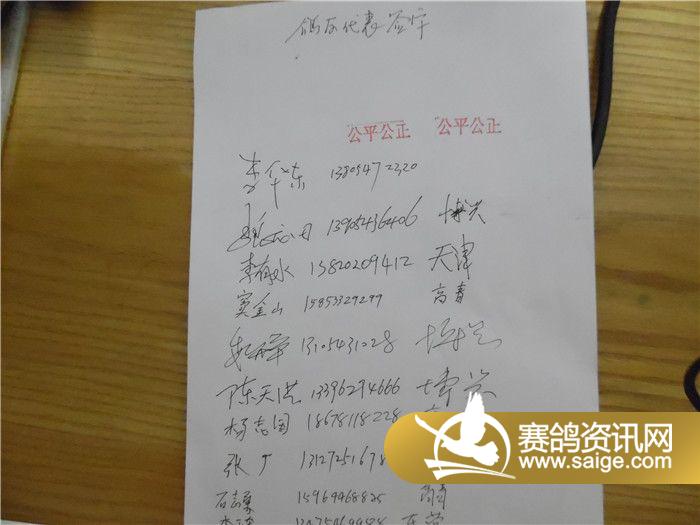 鸽友代表签字
公平公正 公平公正
李华东 13805472320
13905436406 博兴
李有水 13820209412 天津
窦金山 15853329299 高青
13105431028 博兴
陈天洪 13396294666 博兴
杨志国 18678118228
张广 1312725167
石志荣 15969968825 高青
赛鸽资讯网
www.saige.com